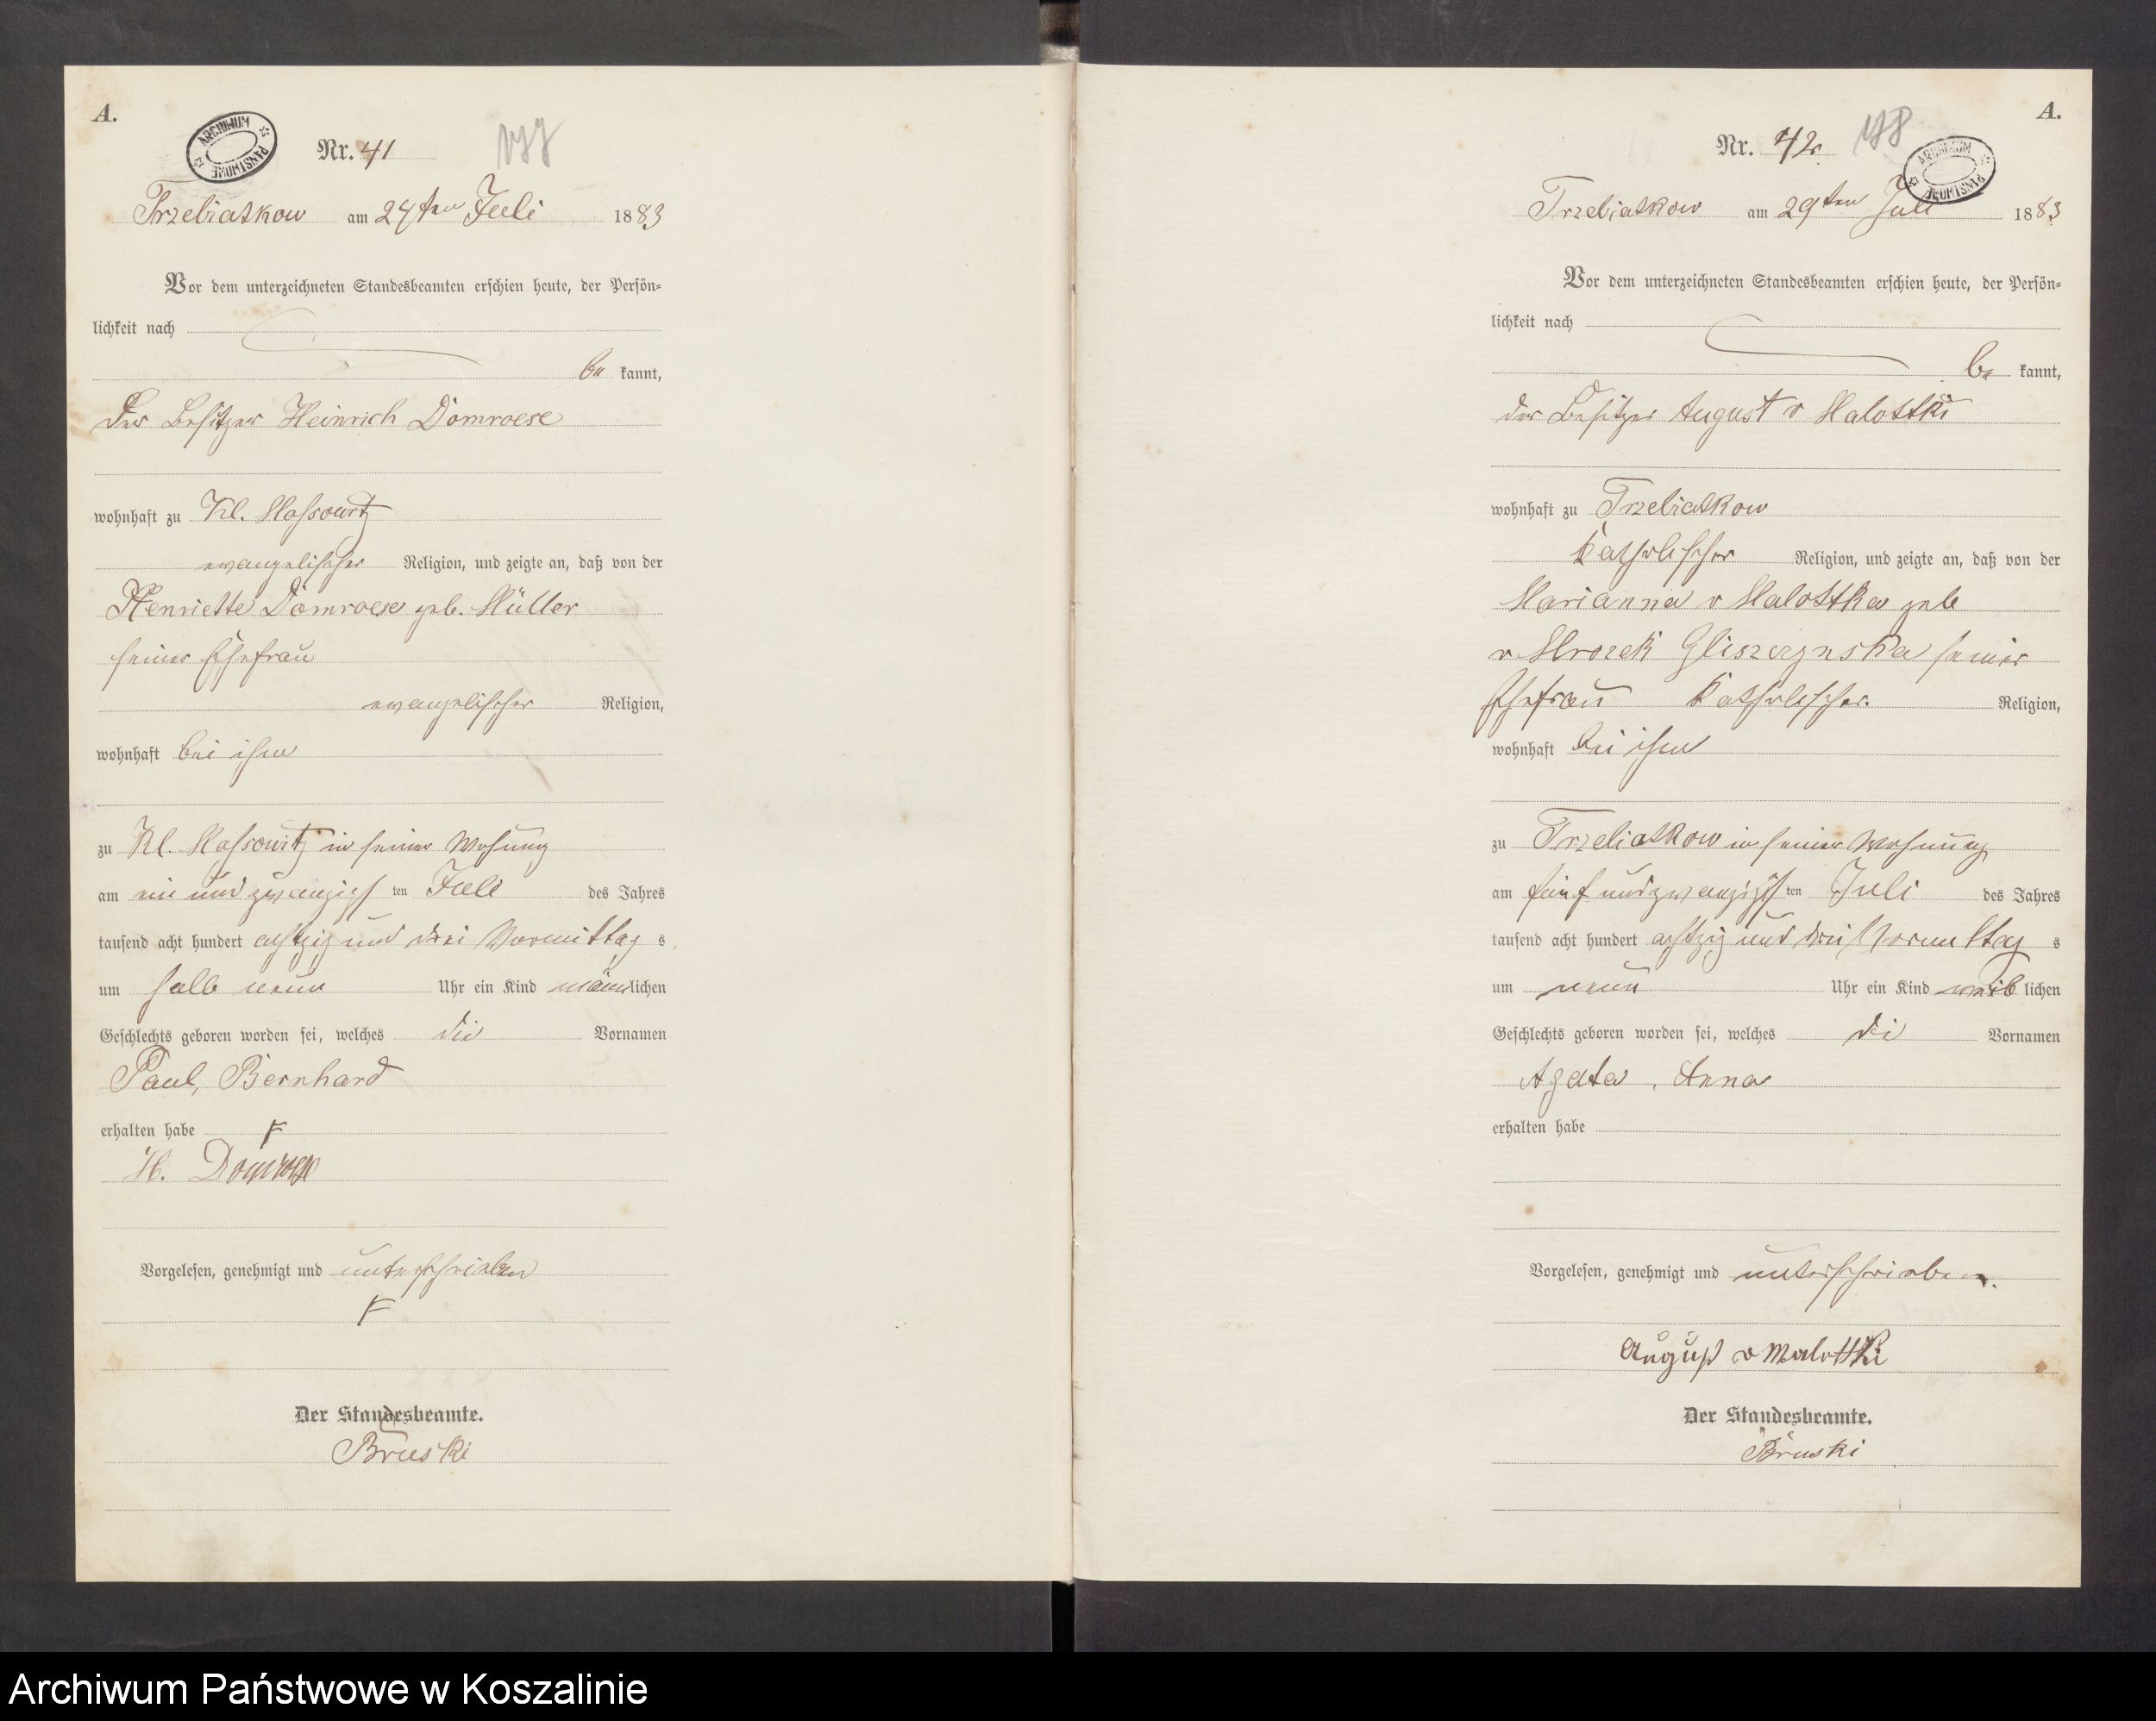 A.
ARCHIWUM PAŃSTWOWE
Nr. 41
177
Trzebiatkow am 24ten Juli 1883
Vor dem unterzeichneten Standesbeamten erschien heute, der Persön-
lichkeit nach
be kannt,
Der Besitzer Heinrich Domroese
wohnhaft zu Kl. Massowitz
evangelischer Religion, und zeigte an, daß von der
Henriette Domroese geb. Müller
seiner Ehefrau
evangelischer Religion,
wohnhaft bei ihm
zu Kl. Massowitz in seiner Wohnung
am ein und zwanzigsten Juli des Jahres
tausend acht hundert achtzig und drei Vormittags
um halb neun Uhr ein Kind männlichen
Geschlechts geboren worden sei, welches die Vornamen
Paul, Bernhard
erhalten habe F
H. Domroese
Vorgelesen, genehmigt und unterschrieben
F
Der Standesbeamte.
Bruski
A.
Nr. 42.
178
ARCHIWUM PAŃSTWOWE
Trzebiatkow am 29ten Juli 1883
Vor dem unterzeichneten Standesbeamten erschien heute, der Persön-
lichkeit nach
be kannt,
der Besitzer August v Malottki
wohnhaft zu Trzebiatkow
katholischer Religion, und zeigte an, daß von der
Marianna v Malottka geb
v Mrozek Gliszczynska seiner
Ehefrau katholischer Religion,
wohnhaft bei ihm
zu Trzebiatkow in seiner Wohnung
am fünf und zwanzigsten Juli des Jahres
tausend acht hundert achtzig und drei Vormittags
um neun Uhr ein Kind weiblichen
Geschlechts geboren worden sei, welches die Vornamen
Agata, Anna
erhalten habe
Vorgelesen, genehmigt und unterschrieben.
August v Malottki
Der Standesbeamte.
Bruski
Archiwum Państwowe w Koszalinie